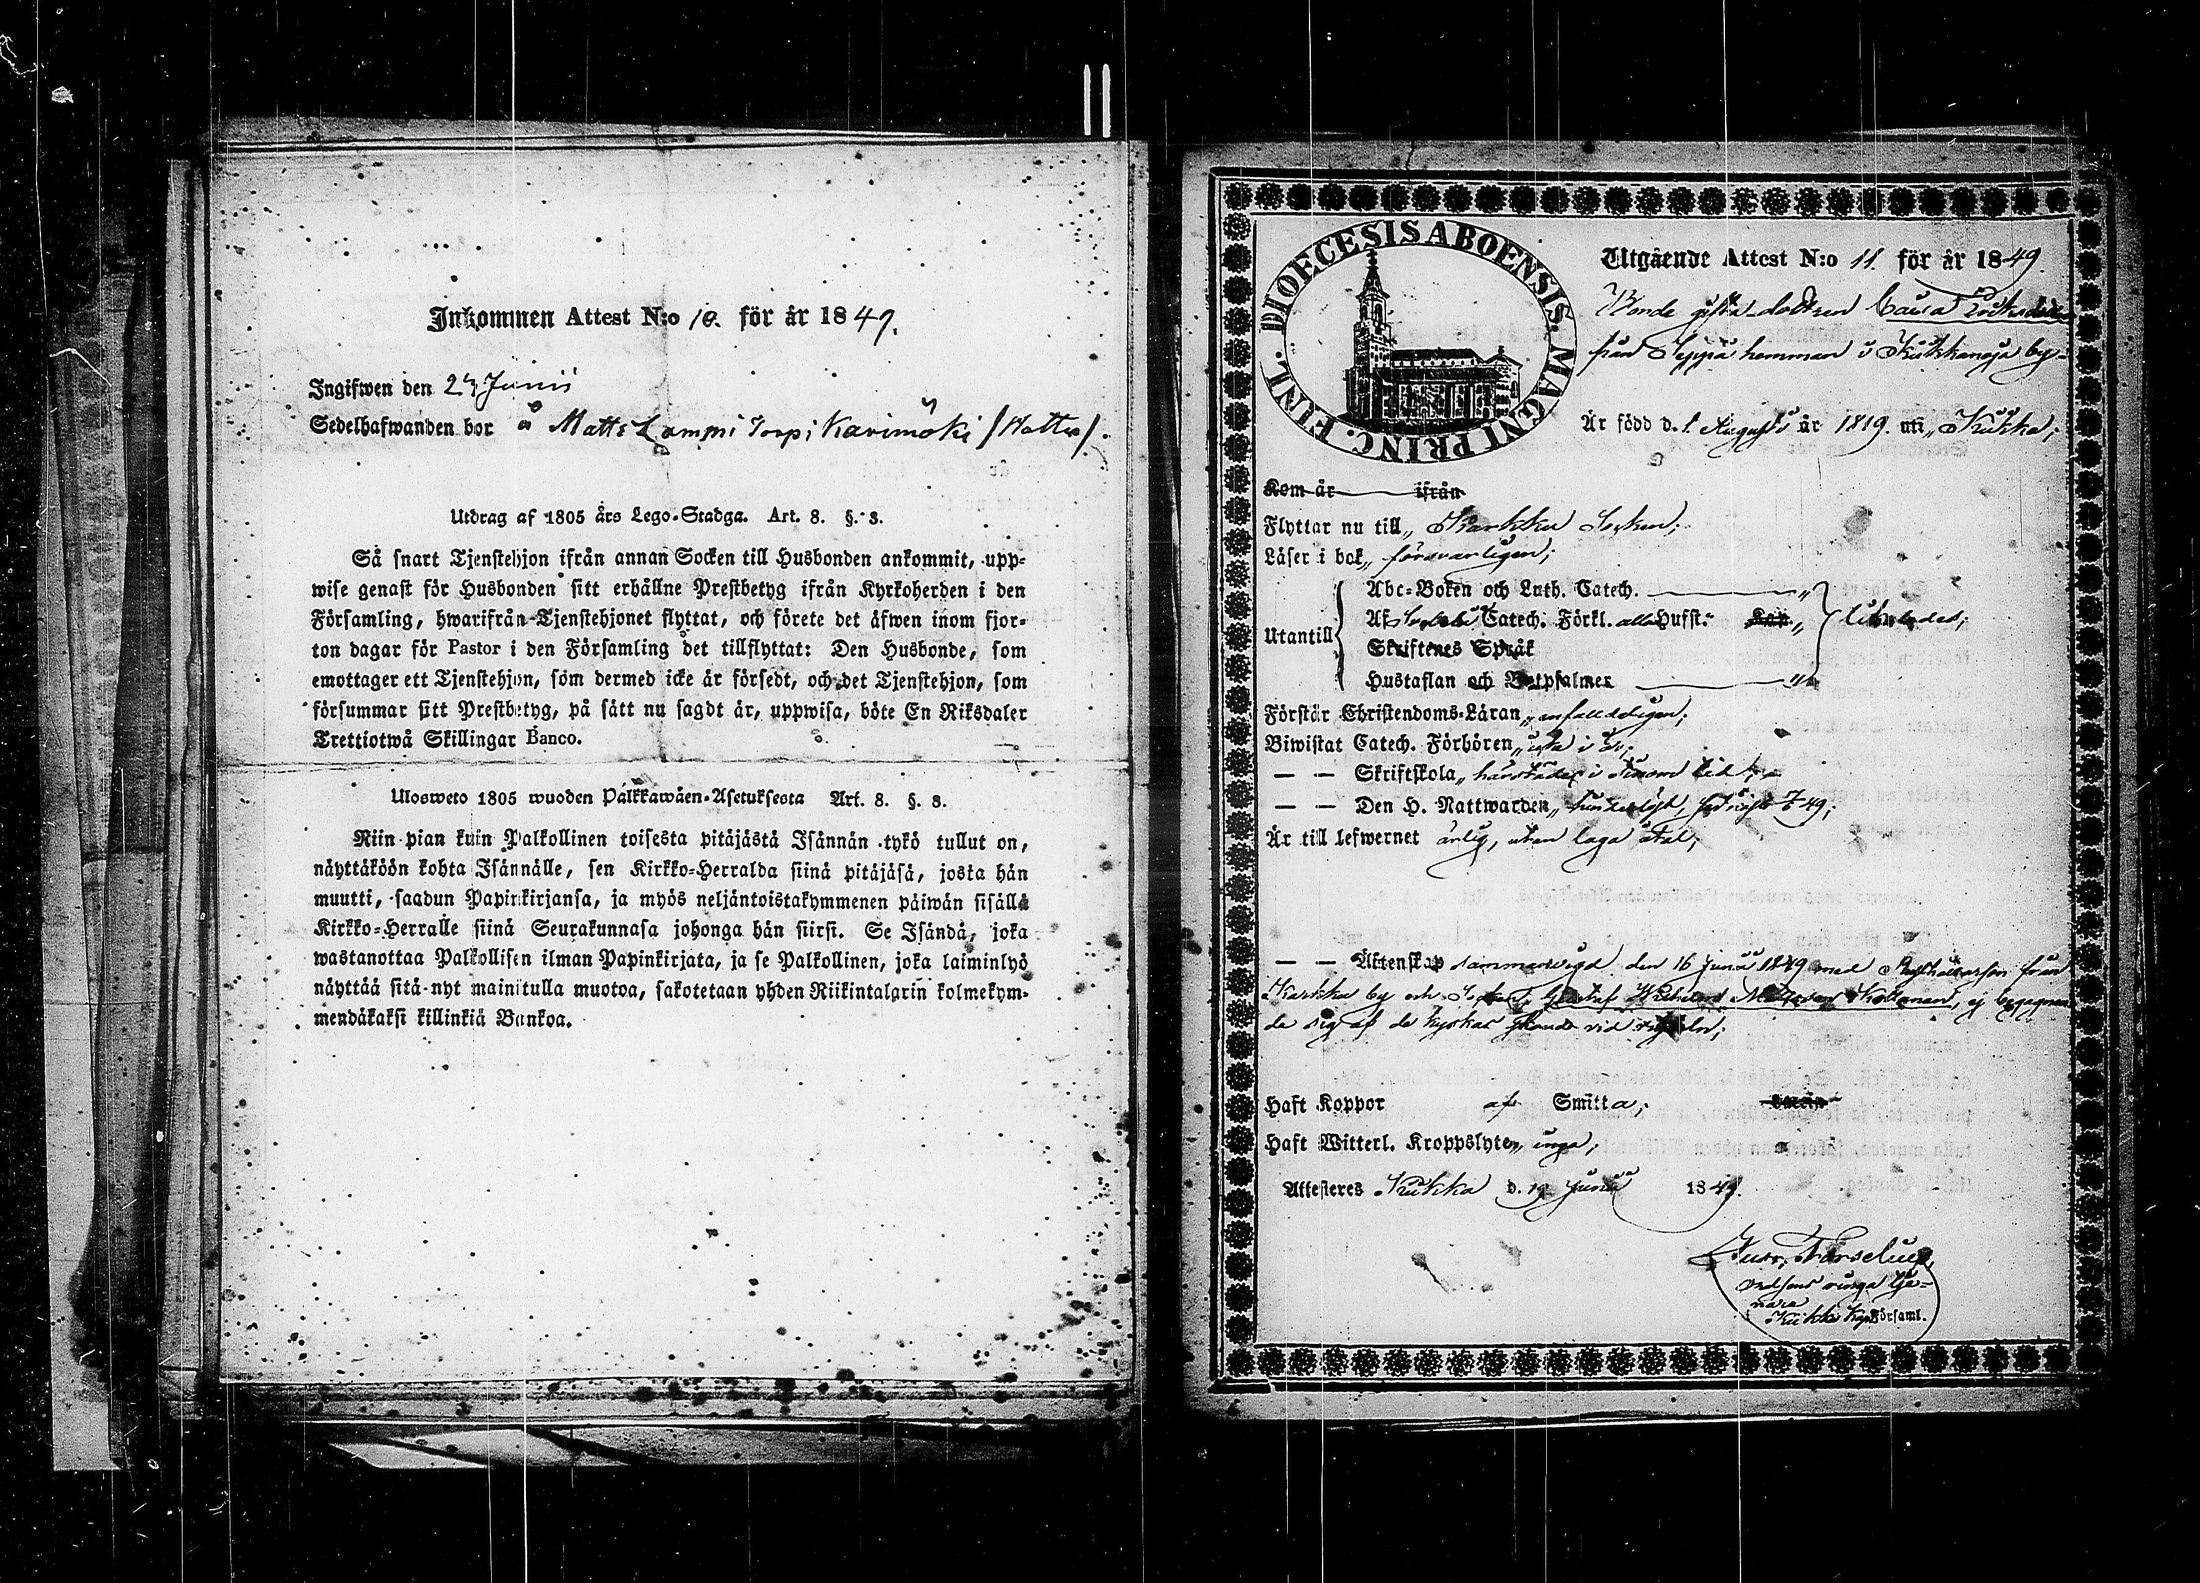 Inkommen Attest N:o 10. för år 1849.
Ingifwen den 24 Junii
Sedelhafwanden bor å Matts Lampi Torp i Karimäki /
Utdrag af 1805 års Lego-Stadga. Art. 8. §. 3.
Så snart Tjenstehjon ifrån annan Socken till Husbonden ankommit, upp-
wise genast för Husbonden sitt erhållne Prestbetyg ifrån Kyrkoherden i den
Församling, hwarifrån Tjenstehjonet flyttat, och förete det äfwen inom fjor-
ton dagar för Pastor i den Församling det tillflyttat: Den Husbonde, som
emottager ett Tjenstehjon, som dermed icke är försedt, och det Tjenstehjon, som
försummar sitt Prestbetyg, på sätt nu sagdt är, uppwisa, böte En Riksdaler
Trettiotwå Skillingar Banco.
Ulosweto 1805 wuoden Palkkawäen-Asetuksesta Art. 8. §. 3.
Niin pian kuin Palkollinen toisesta pitäjästä Isännän tykö tullut on,
näyttäköön kohta Isännälle, sen Kirkko-Herralda siinä pitäjäsä, josta hän
muutti, saadun Papinkirjansa, ja myös neljäntoistakymmenen päiwän sisällä
Kirkko-Herralle siinä Seurakunnasa johonga hän siirsi. Se Isändä, joka
wastanottaa Palkollisen ilman Papinkirjata, ja se Palkollinen, joka laiminlyö
näyttää sitä nyt mainitulla muotoa, sakotetaan yhden Riikintalarin kolmekym-
mendäkaksi killinkiä Bankoa.
DIOECESIS ABOENSIS. MAGNI PRINC. FINL.
Utgående Attest N:o 11. för år 1849.
Bonde gifta dottren Caisa Eriksdotter
från Seppä hemman i Kiikkanoja by
Är född d. 1 Augusti år 1819. uti Kiikka;
Kom år ifrån
Flyttar nu till Karkku Socken;
Läser i bok försvarligen;
Utantill
Abc-Boken och Luth. Catech.
Af Catech. Förkl. alla Hufst: Kan likaledes;
Skriftenes Språk
Hustaflan och Botpsalmer
Förstår Christendoms-Läran enfalldeligen;
Biwistat Catech. Förhören
— — Skriftskola härstädes i sinom tid
— — Den H. Nattwarden
Är till lefwernet ärlig, utan laga åtal;
— — Äktenskap sammanvigd den 16 Junii 1849 med från
Karkku by och Socken, Gustaf Wilhelm ej begagnan-
de sig af de kyskas vid
Haft Koppor af Smitta;
Haft Witterl. Kroppslyten inga;
Attesteras Kiikka d. 19 Junii 1849.
i Kiikka Kap Församl.